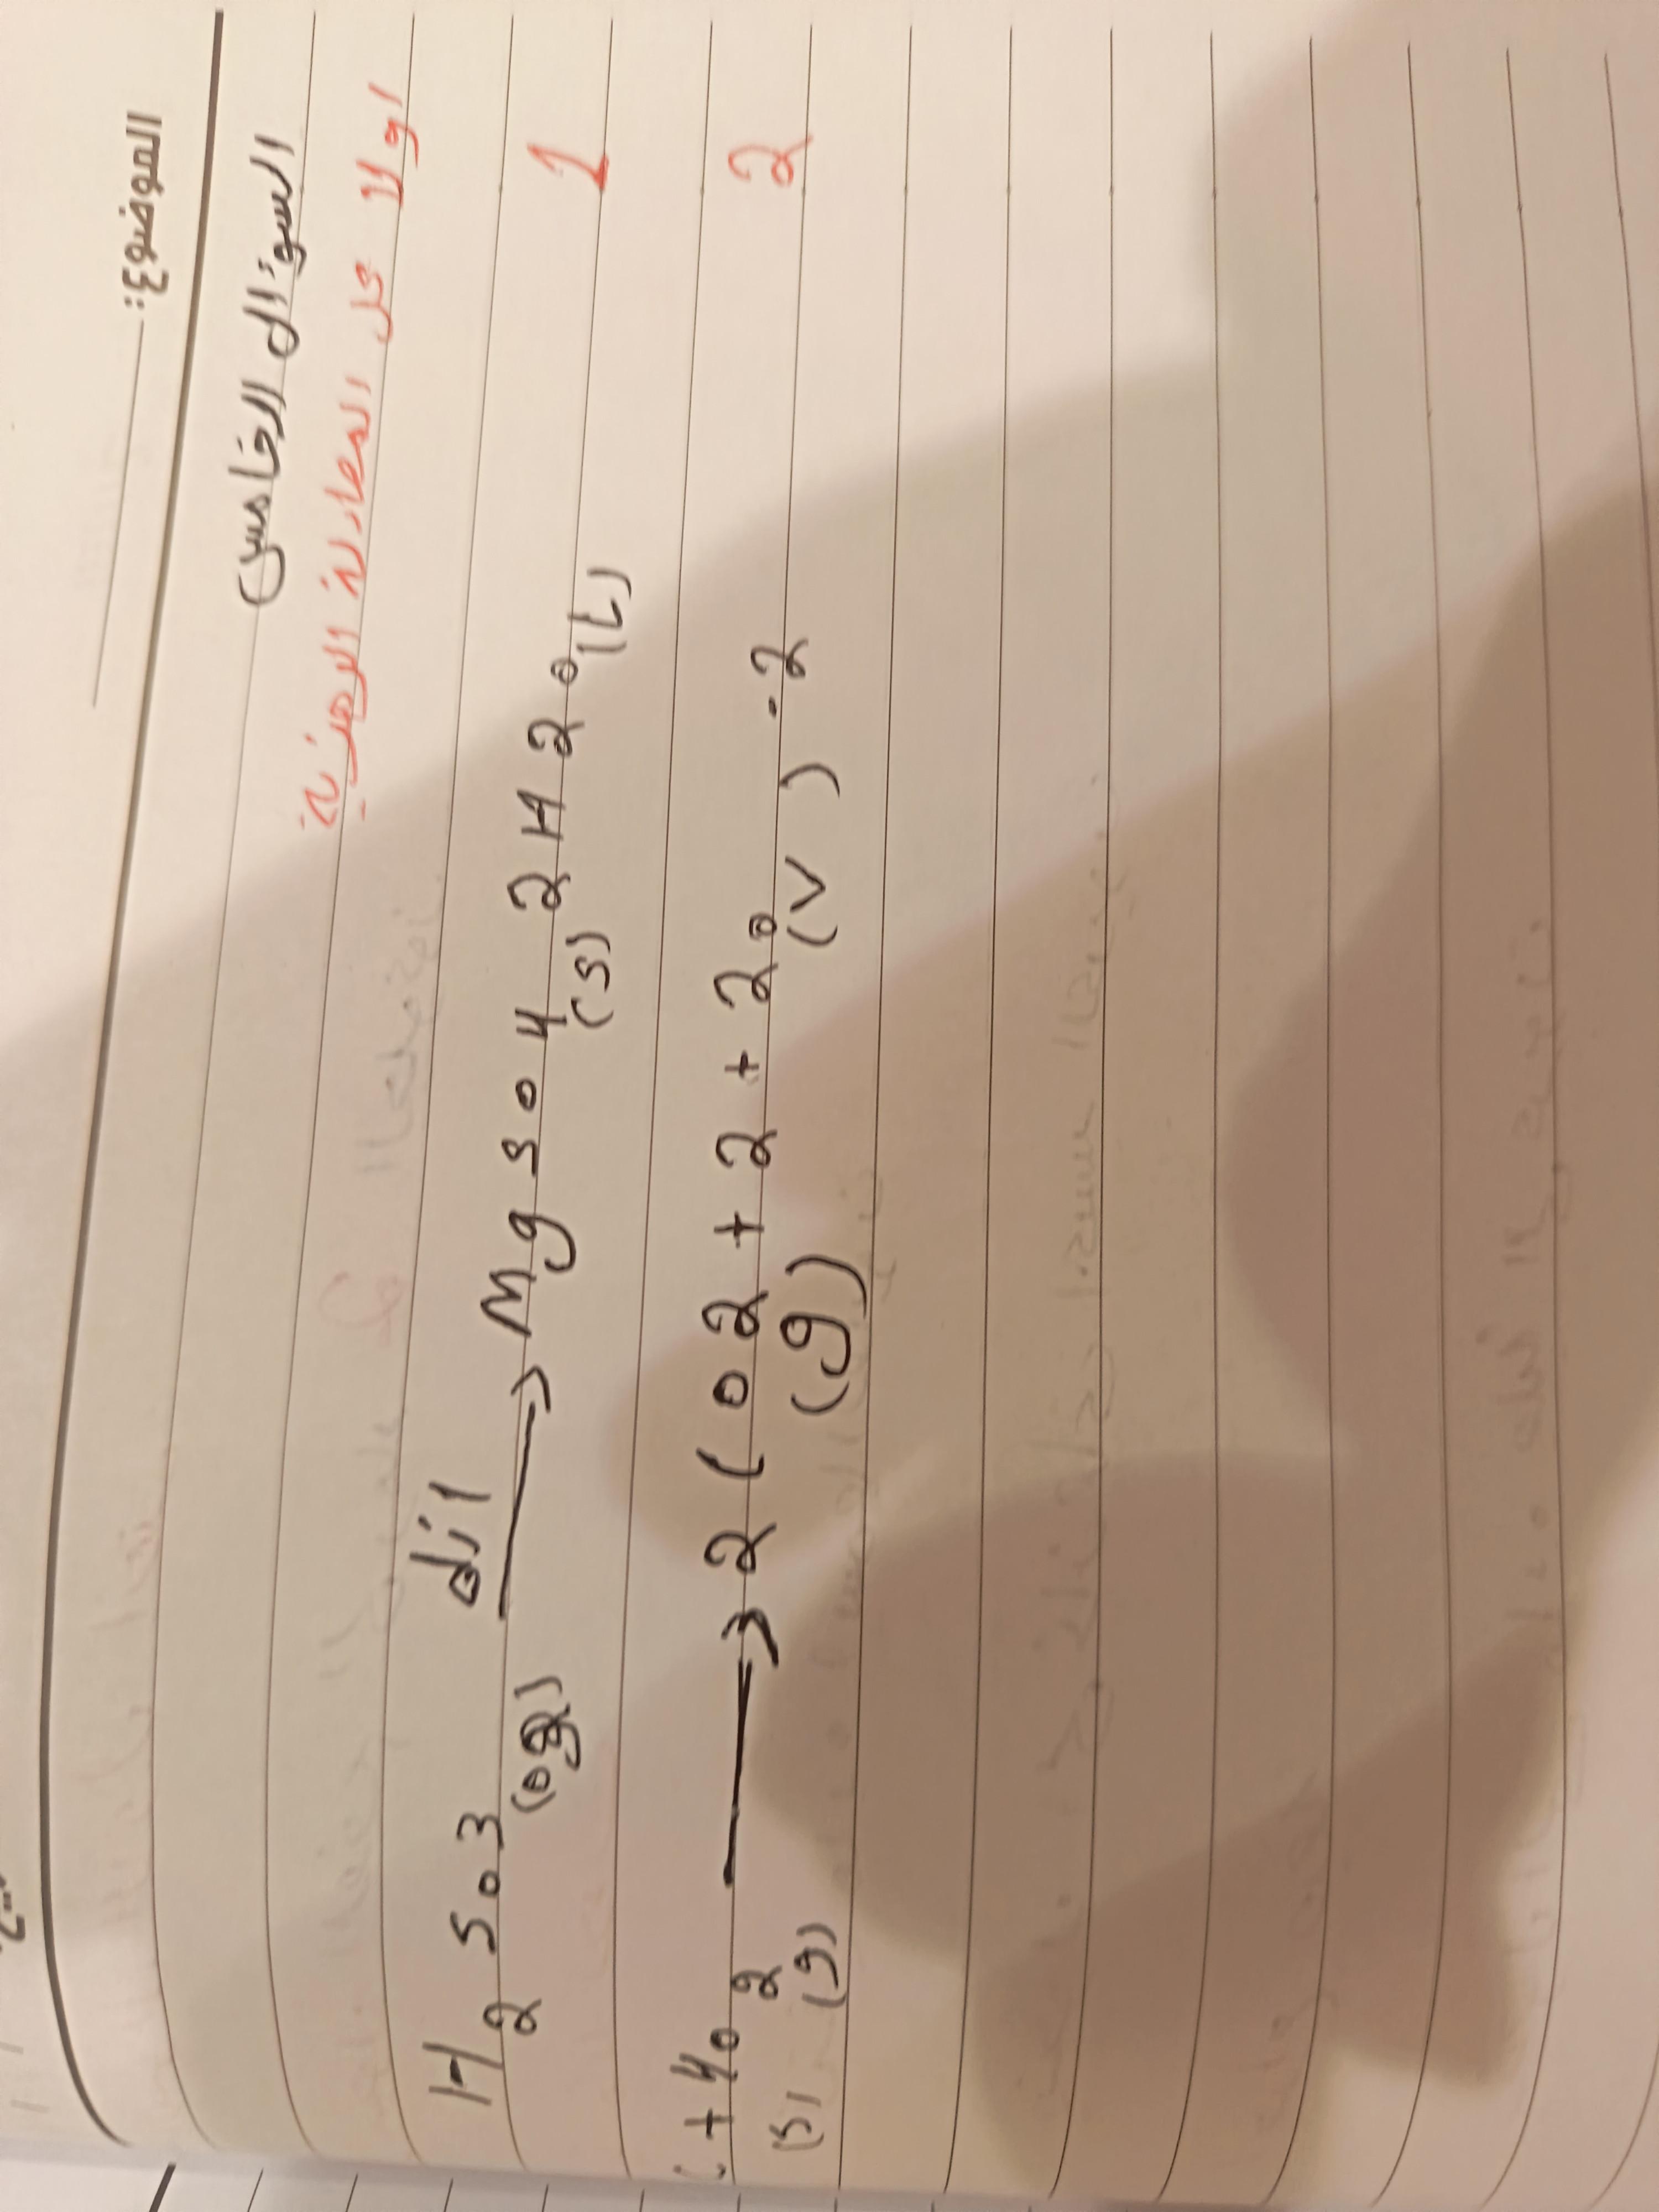 الموضوع:
السؤال الخامس
اولا حل المعادلة الرمزية
1 H2SO3 (og) dil → MgSO4 (s) 2H2O (L)
2 + 4O2 (s) (g) → 2(O2 + 2 + 2O (g) (v) . 2